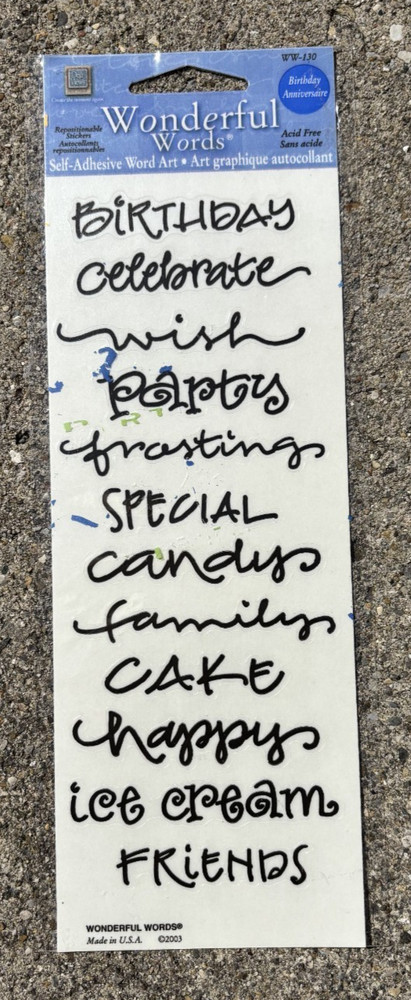 WW-130
Birthday
Anniversaire
Wonderful
Words®
Repositionable
Stickers
Autocollants
repositionnables
Acid Free
Sans acide
Self-Adhesive Word Art • Art graphique autocollant
BiRTHDAY
celebrate
wish
party
frosting
SPECIAL
candy
family
CAKE
happy
ice cream
FRiENDS
WONDERFUL WORDS®
Made in U.S.A. ©2003